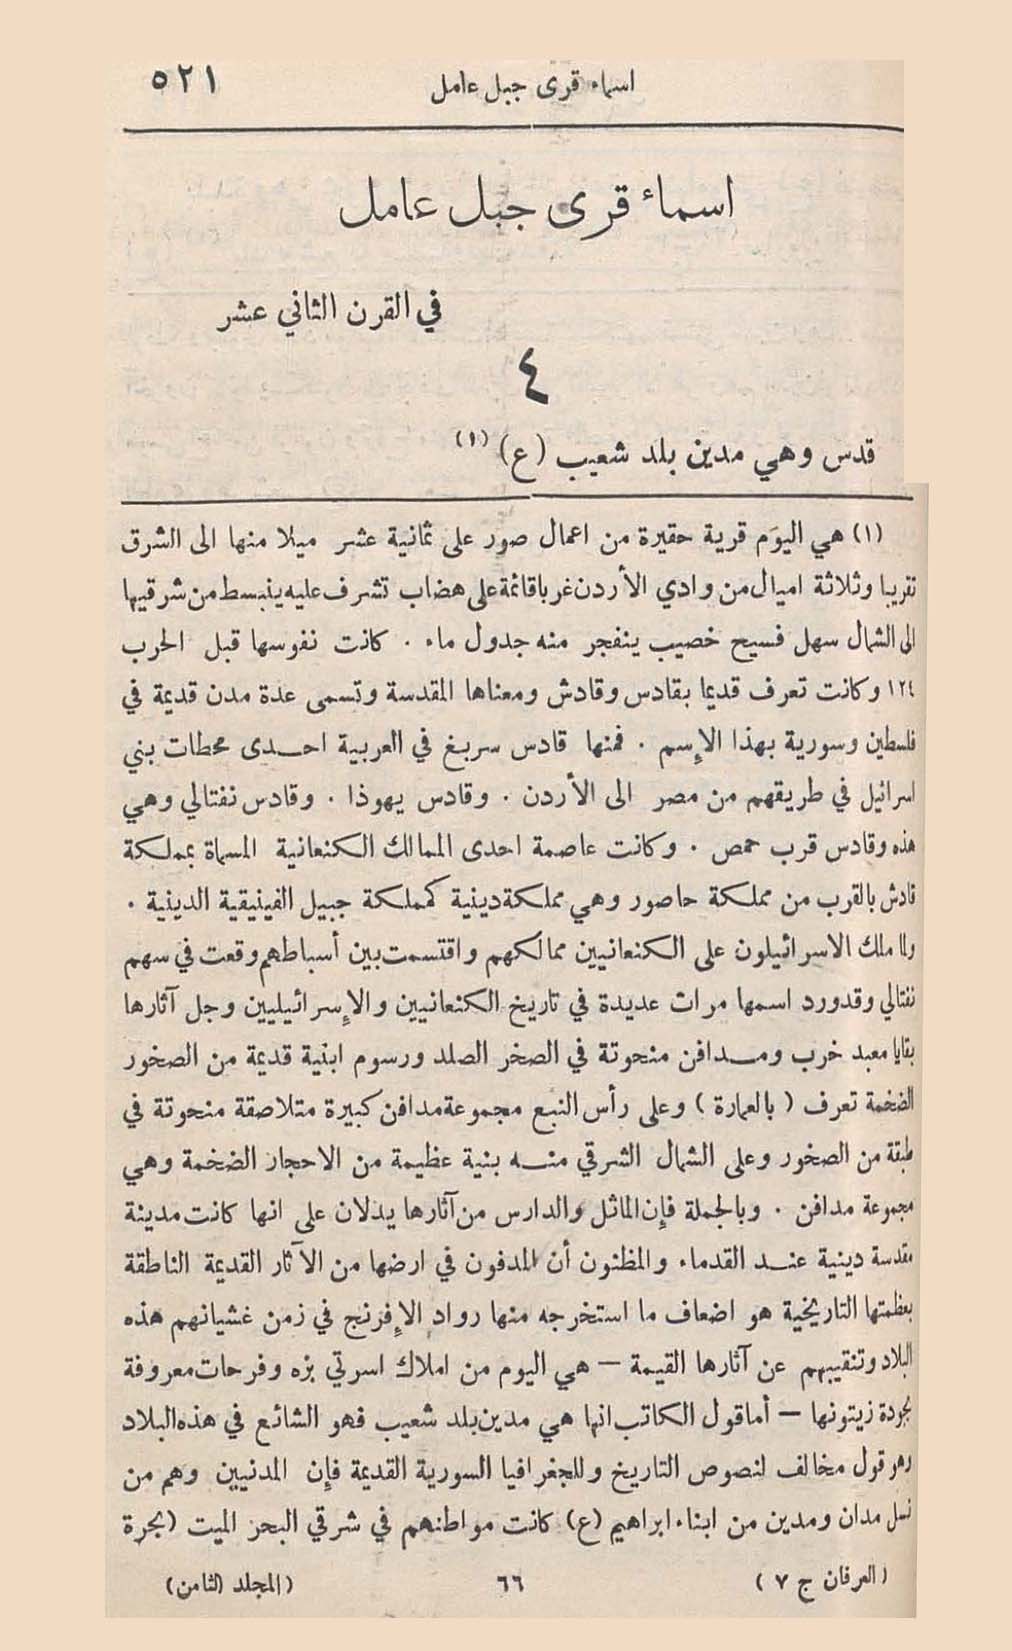 اسماء قرى جبل عامل ٥٢١
اسماء قرى جبل عامل
في القرن الثاني عشر
٤
قدس وهي مدين بلد شعيب (ع) (١)
(١) هي اليوم قرية حقيرة من اعمال صور على ثمانية عشر ميلا منها الى الشرق
تقريبا وثلاثة اميال من وادي الأردن غربا قائمة على هضاب تشرف عليه ينبسط من شرقيها
الى الشمال سهل فسيح خصيب ينفجر منه جدول ماء . كانت نفوسها قبل الحرب
١٢٤ وكانت تعرف قديما بقادس وقادش ومعناها المقدسة وتسمى عدة مدن قديمة في
فلسطين وسورية بهذا الإسم . فمنها قادس سربغ في العربية احدى محطات بني
اسرائيل في طريقهم من مصر الى الأردن . وقادس يهوذا . وقادس نفتالي وهي
هذه وقادس قرب حمص . وكانت عاصمة احدى الممالك الكنعانية المسماة بمملكة
قادش بالقرب من مملكة حاصور وهي مملكة دينية كمملكة جبيل الفينيقية الدينية .
ولما ملك الاسرائيلون على الكنعانيين ممالكهم واقتسمت بين أسباطهم وقعت في سهم
نفتالي وقدورد اسمها مرات عديدة في تاريخ الكنعانيين والإسرائيليين وجل آثارها
بقايا معبد خرب ومدافن منحوتة في الصخر الصلد ورسوم ابنية قديمة من الصخور
الضخمة تعرف (بالعمارة) وعلى رأس النبع مجموعة مدافن كبيرة متلاصقة منحوتة في
طبقة من الصخور وعلى الشمال الشرقي منه بنية عظيمة من الاحجار الضخمة وهي
مجموعة مدافن . وبالجملة فإن الماثل والدارس من آثارها يدلان على انها كانت مدينة
مقدسة دينية عند القدماء والمظنون أن المدفون في ارضها من الآثار القديمة الناطقة
بعظمتها التاريخية هو اضعاف ما استخرجه منها رواد الإفرنج في زمن غشيانهم هذه
البلاد وتنقيبهم عن آثارها القيمة — هي اليوم من املاك اسرتي بزه وفرحات معروفة
بجودة زيتونها — أما قول الكاتب انها هي مدين بلد شعيب فهو الشائع في هذه البلاد
وهو قول مخالف لنصوص التاريخ وللجغرافيا السورية القديمة فإن المدنيين وهم من
نسل مدان ومدين من ابناء ابراهيم (ع) كانت مواطنهم في شرقي البحر الميت (بحرة
(العرفان ج ٧) ٦٦ (المجلد الثامن)